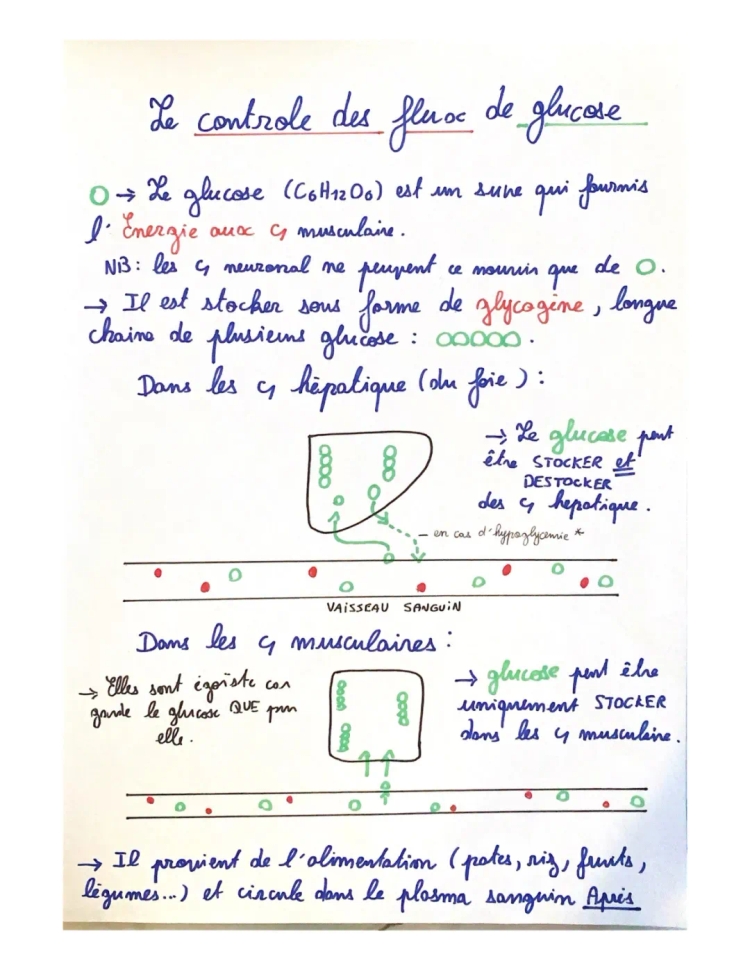 Le controle des flux de glucose
O → Le glucose (C6H12O6) est un sucre qui fournis
l'Energie aux cς musculaire.
NB: les cς neuronal ne peuvent ce nourrir que de O.
→ Il est stocker sous forme de glycogène, longue
chaine de plusieurs glucose : OOOOO.
Dans les cς hépatique (du foie) :
→ Le glucose peut
être STOCKER et
DESTOCKER
des cς hepatique.
- en cas d'hypoglycemie *
VAISSEAU SANGUIN
Dans les cς musculaires :
→ Elles sont égoïste car
garde le glucose QUE pour
elle.
→ glucose peut être
uniquement STOCKER
dans les cς musculaire.
→ Il provient de l'alimentation (pates, riz, fruits,
légumes...) et circule dans le plasma sanguin Après